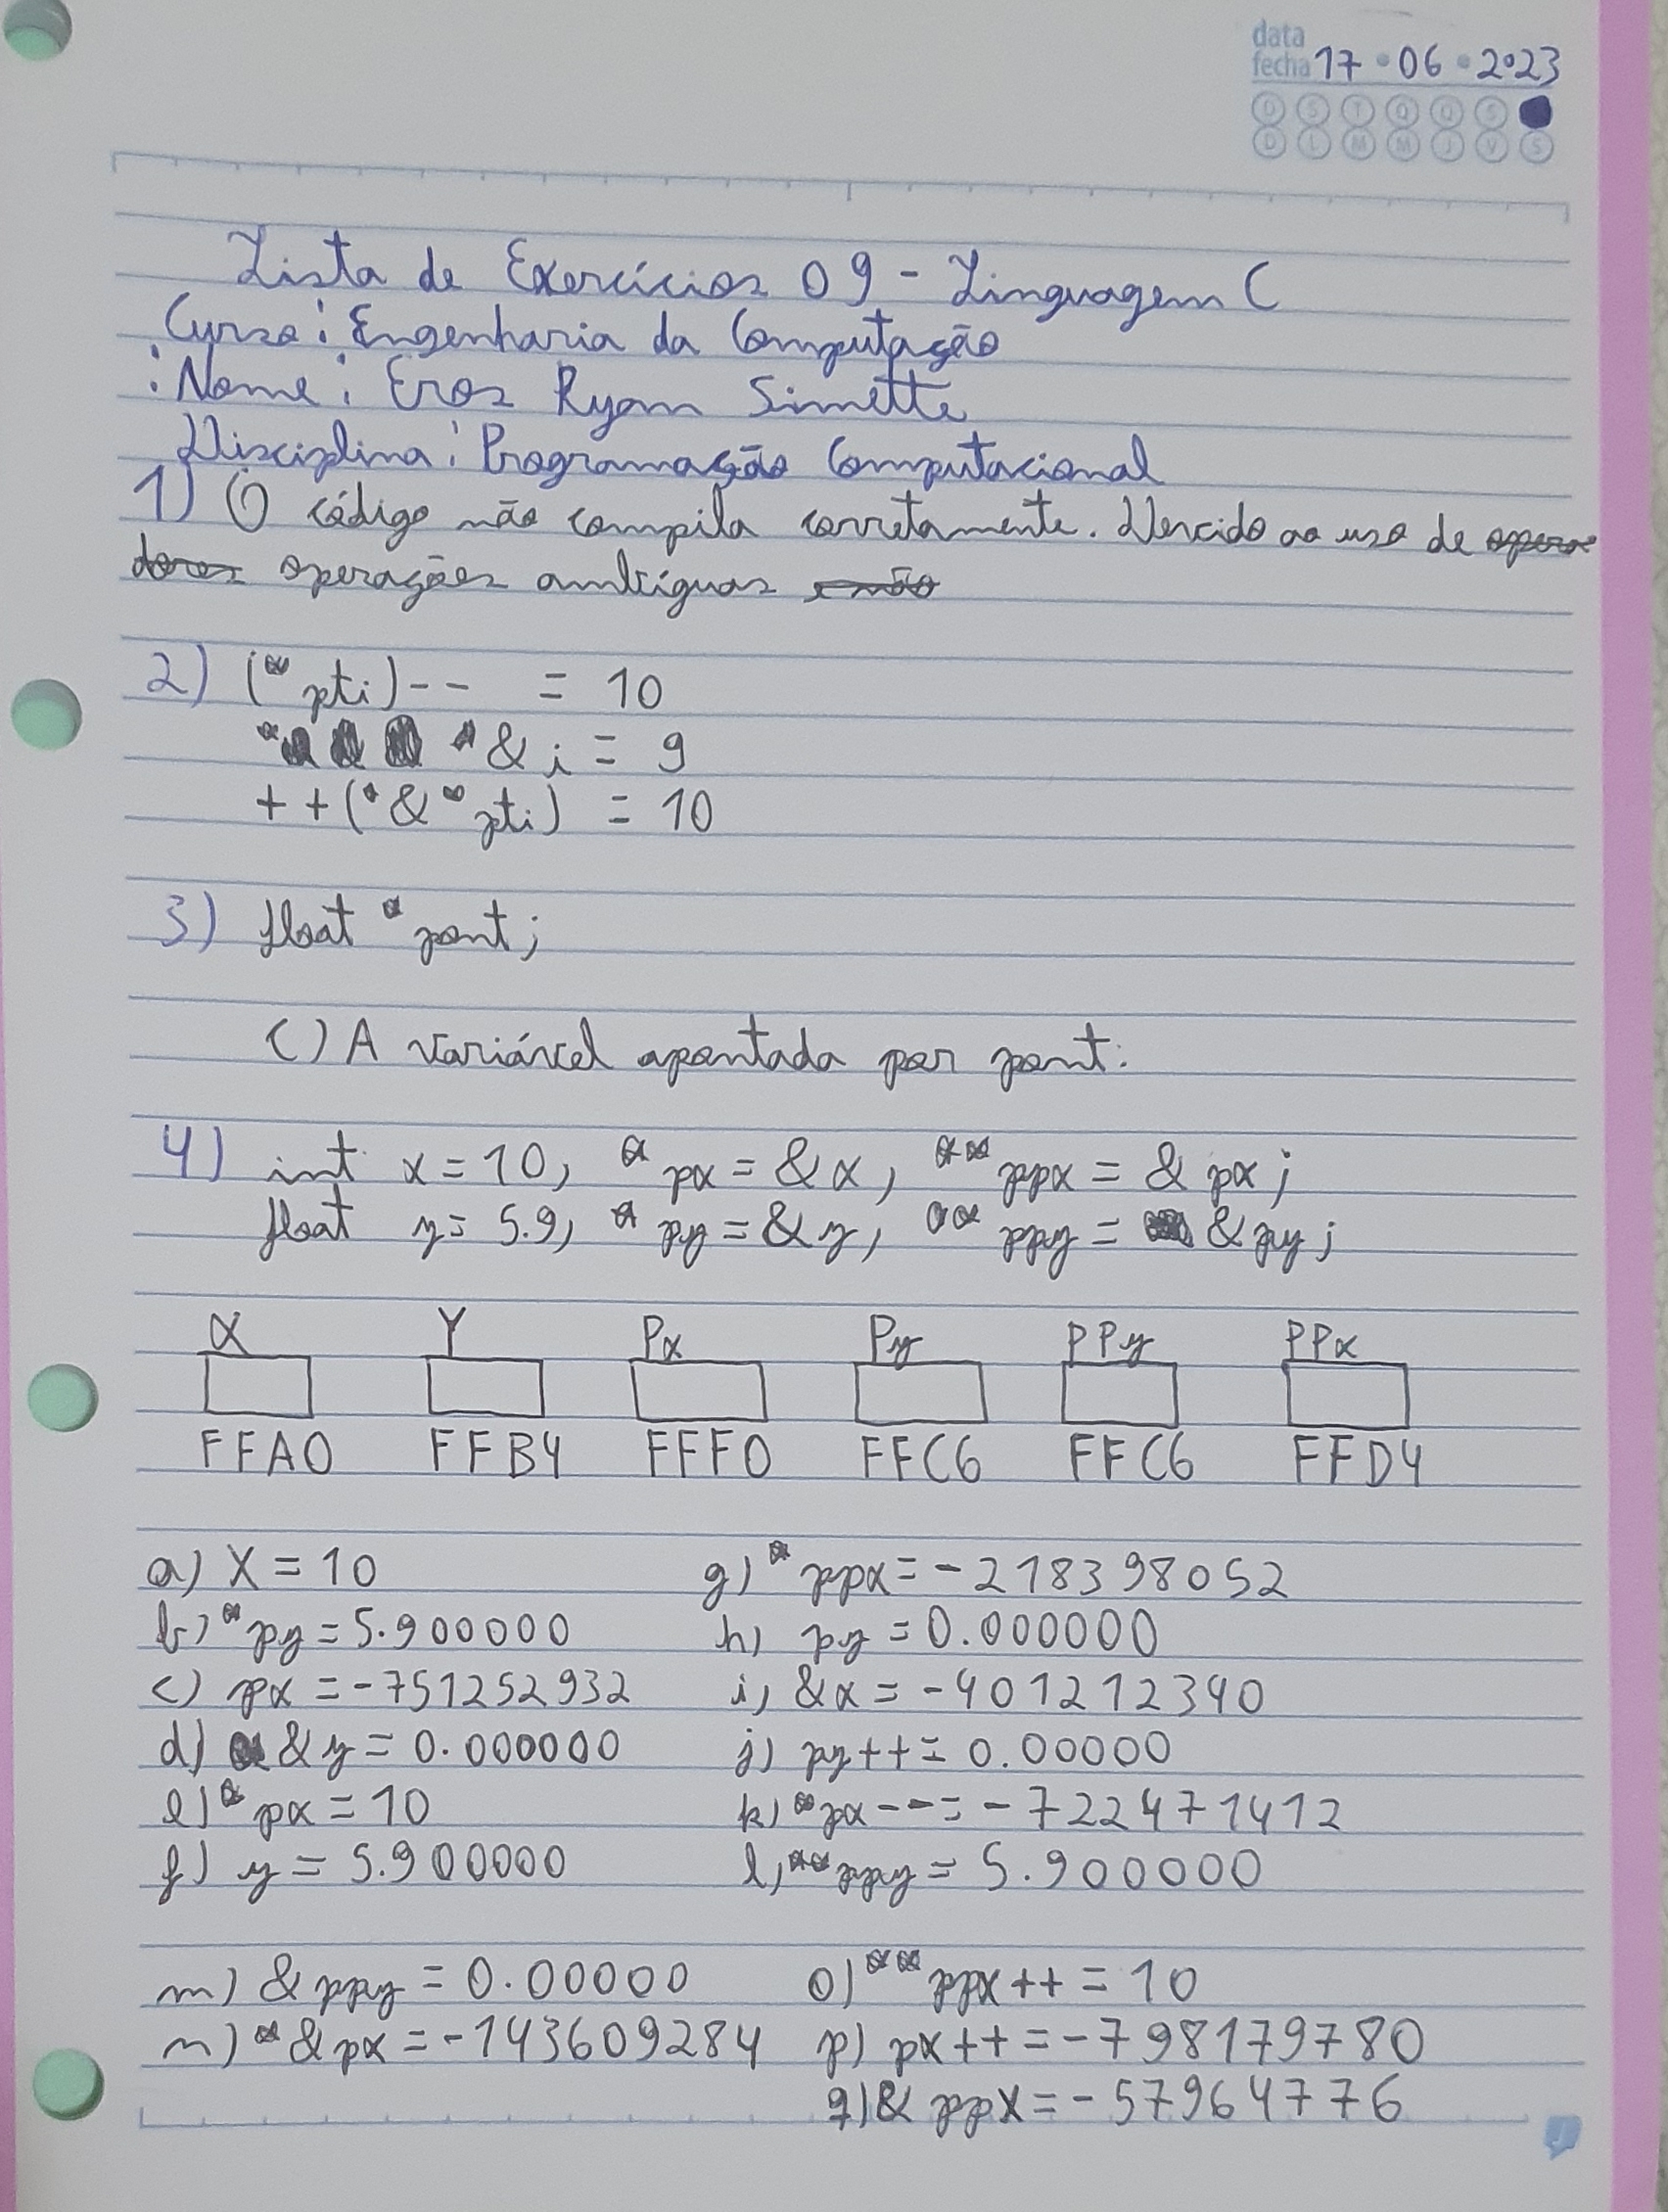 data
fecha 17 • 06 • 2023
D S T Q Q S
D L M M J V S
Lista de Exercícios 09 - Linguagem C
Curso: Engenharia da Computação
: Nome: Eros Ryan Simette
Disciplina: Programação Computacional
1) O código não compila corretamente. Devido ao uso de opera
dores operações ambíguas e não
2) (*pti)-- = 10
* *&i = 9
++(*&*pti) = 10
3) float *pont;
C) A variável apontada por pont.
4) int x=10, *px=&x, **ppx=&px;
float y=5.9, *py=&y, **ppy= &py;
X Y Px Py PPy PPx
FFA0 FFB4 FFF0 FFC6 FFC6 FFD4
a) X=10 g) *ppx=-218398052
b) *py=5.900000 h) py=0.000000
c) px=-751252932 i) &x=-401212340
d) &y=0.000000 j) py++=0.00000
e) *px=10 k) *px--=-722471412
f) y=5.900000 l) **ppy=5.900000
m) &ppy=0.00000 o) **ppx++=10
n) *&px=-143609284 p) px++=-798179780
q) &ppx=-57964776